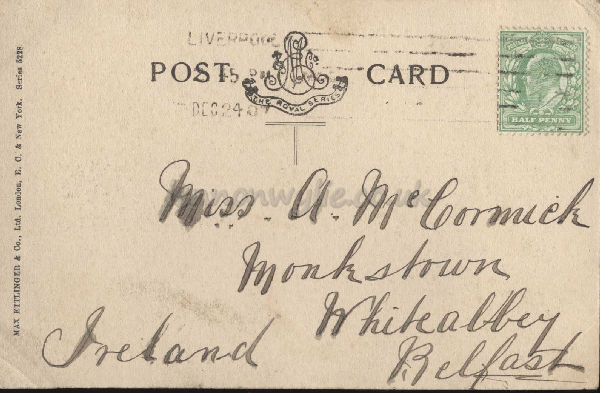 LIVERPOOL
POST CARD
5 PM
THE ROYAL SERIES
DEC 24 07
HALF PENNY
MAX ETTLINGER & Co., Ltd. London, E. C. & New York. Series 5228
Miss. A. McCormick
Monkstown
Whiteabbey
Ireland Belfast